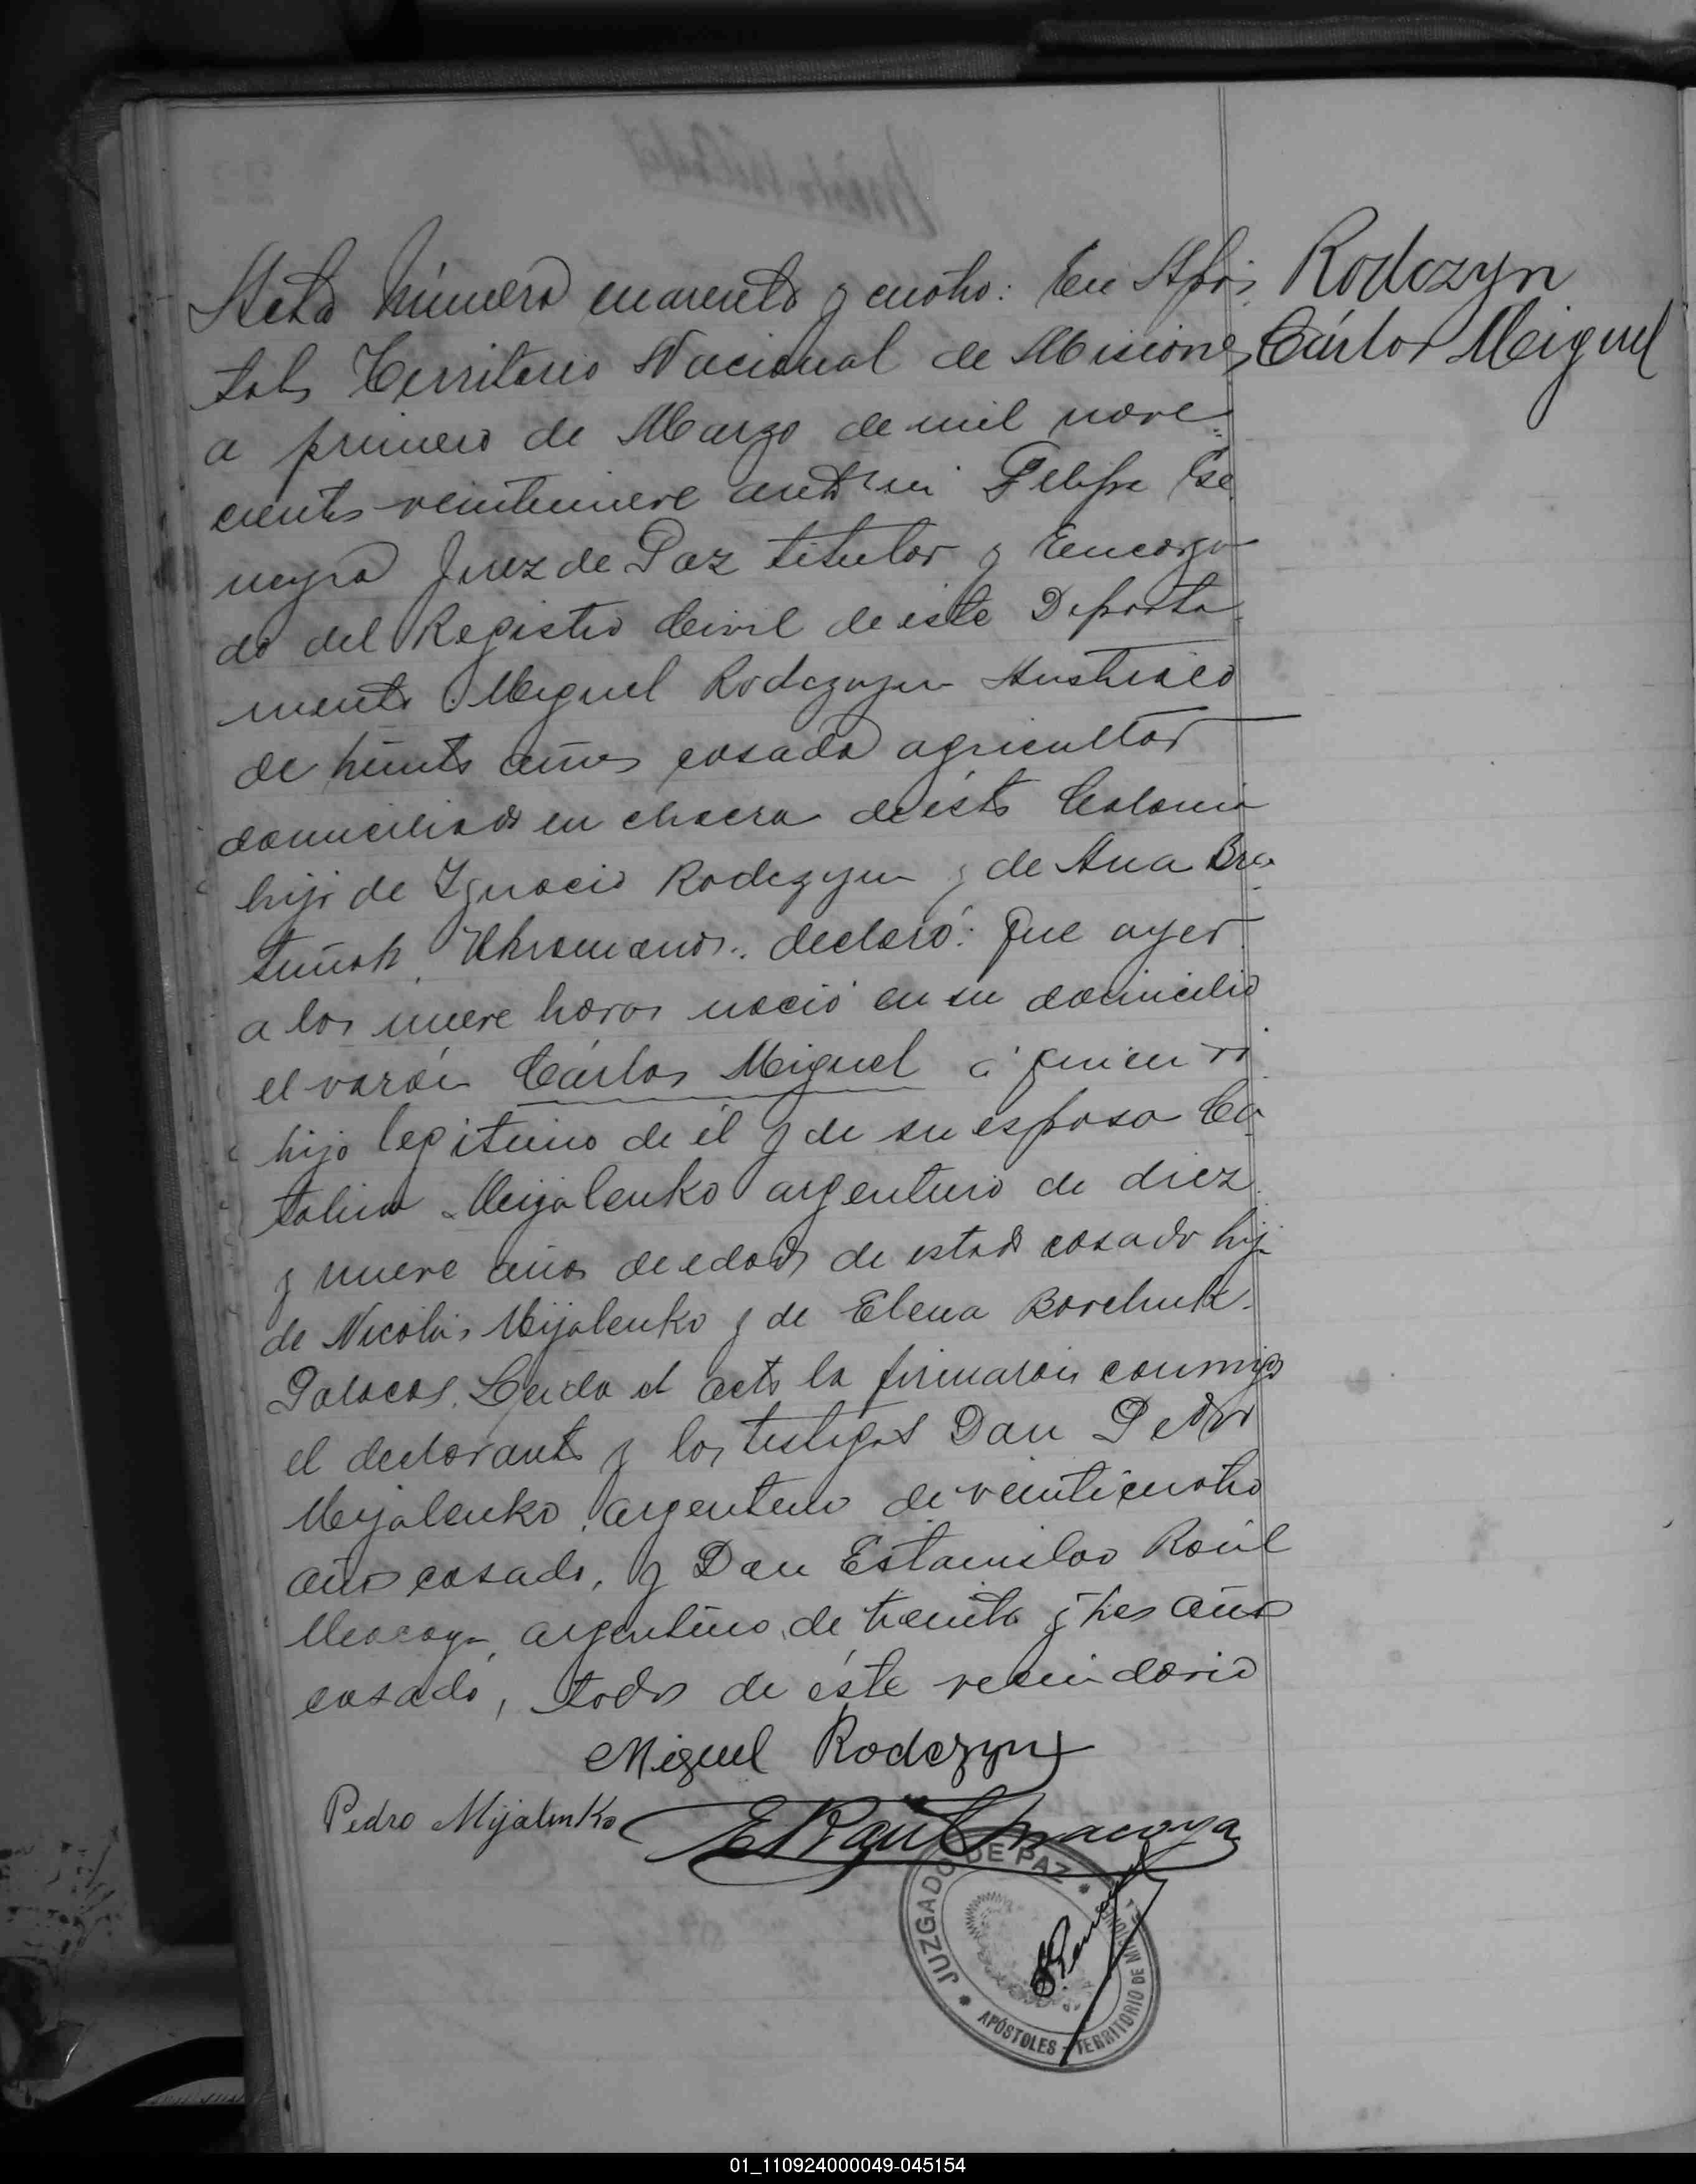 Rodczyn
Cárlos Miguel
Acta número cuarenta y cuatro: En Após
toles Territorio Nacional de Misiones
a primero de Marzo de mil nove
cientos veintinueve ante mi Felipe
Juez de Paz titular y Encarga
do del Registro Civil de este Departa
mento Miguel Rodczyn Austriaco
de años casado agricultor
domiciliado en chacra de ésta Colonia
hijo de Ignacio Rodczyn y de Ana
declaró: Que ayer
a las nueve horas nació en su domicilio
el varón Cárlos Miguel á quien vi
hijo legitimo de él y de su esposa Ca
talina Mijalenko argentina de diez
y nueve años de edad de estado casada hija
de Nicolás Mijalenko y de Elena Borchuk
Polacos. Leida el acta la firmaron conmigo
el declarante y los testigos Don Pedro
Mijalenko argentino de veinticuatro
años casado, y Don Estanislao Raúl
Macaya argentino de treinta y tres años
casado, todos de éste vecindario
Miguel Rodczyn
Pedro Mijalenko
E Raúl Macaya
JUZGADO DE PAZ
APÓSTOLES - TERRITORIO DE MISIONES
01_110924000049-045154